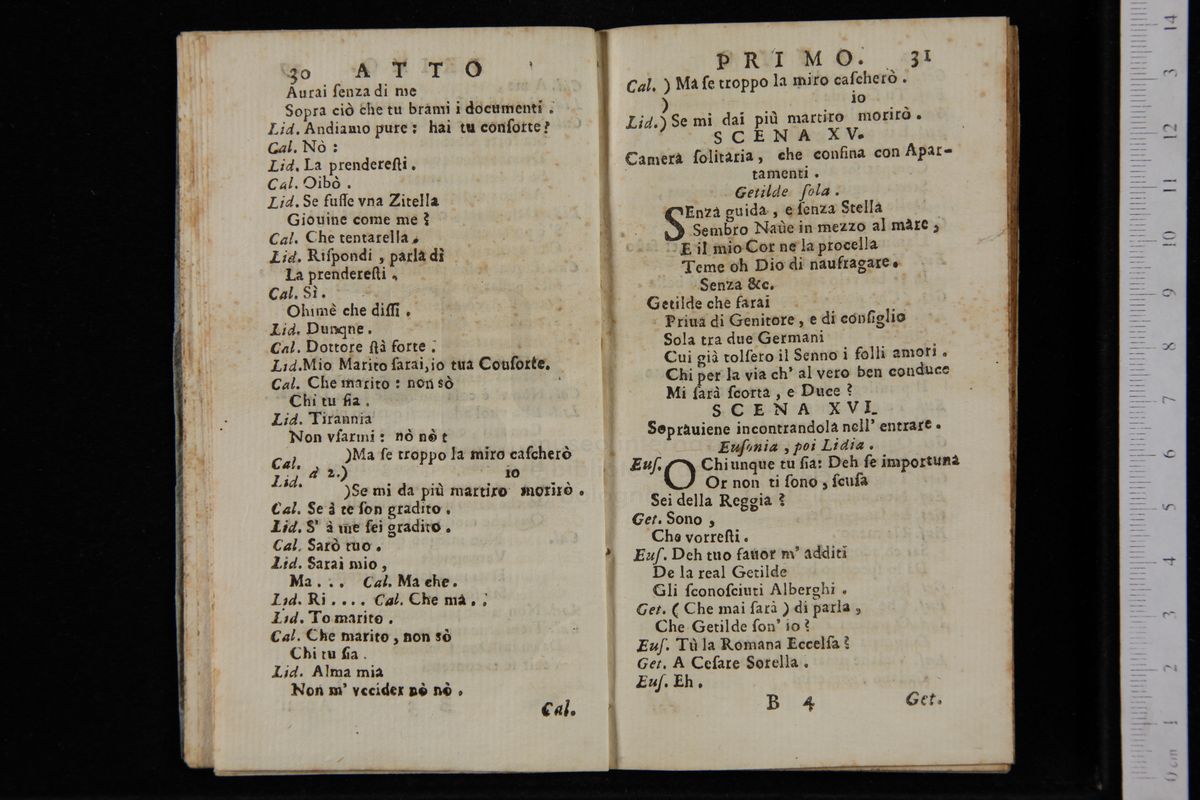 30 ATTO
Aurai ſenza di me
Sopra ciò che tu brami i documenti.
Lid. Andiamo pure: hai tu conſorte?
Cal. Nò:
Lid. La prendereſti.
Cal. Oibò.
Lid. Se fuſſe vna Zitella
Giouine come me?
Cal. Che tentarella.
Lid. Riſpondi, parla dì
La prendereſti.
Cal. Sì.
Ohimè che diſſi.
Lid. Dunqne.
Cal. Dottore ſtà forte.
Lid. Mio Marito ſarai, io tua Conſorte.
Cal. Che marito: non sò
Chi tu ſia.
Lid. Tirannia
Non vſarmi: nò nò t
Cal. )Ma ſe troppo la miro caſcherò
à 2.) io
Lid. )Se mi da più martiro morirò.
Cal. Se à te ſon gradito.
Lid. S' à me ſei gradito.
Cal. Sarò tuo.
Lid. Sarai mio,
Ma... Cal. Ma che.
Lid. Ri.... Cal. Che ma..
Lid. To marito.
Cal. Che marito, non sò
Chi tu ſia.
Lid. Alma mia
Non m' vccider nò nò.
Cal.
PRIMO. 31
Cal. ) Ma ſe troppo la miro caſcherò.
) io
Lid.) Se mi dai più martiro morirò.
SCENA XV.
Camera ſolitaria, che confina con Apar-
tamenti.
Getilde ſola.
SEnza guida, e ſenza Stella
Sembro Naùe in mezzo al mare,
E il mio Cor ne la procella
Teme oh Dio di naufragare.
Senza &c.
Getilde che farai
Priua di Genitore, e di conſiglio
Sola tra due Germani
Cui già tolſero il Senno i folli amori.
Chi per la via ch' al vero ben conduce
Mi ſarà ſcorta, e Duce?
SCENA XVI.
Soprauiene incontrandola nell' entrare.
Euſonia, poi Lidia.
Euſ. O Chiunque tu ſia: Deh ſe importuna
Or non ti ſono, ſcuſa
Sei della Reggia?
Get. Sono,
Che vorreſti.
Euſ. Deh tuo fauor m' additi
De la real Getilde
Gli ſconoſciuti Alberghi.
Get. (Che mai ſarà) di parla,
Che Getilde ſon' io?
Euſ. Tù la Romana Eccelſa?
Get. A Ceſare Sorella.
Euſ. Eh.
B 4 Get.